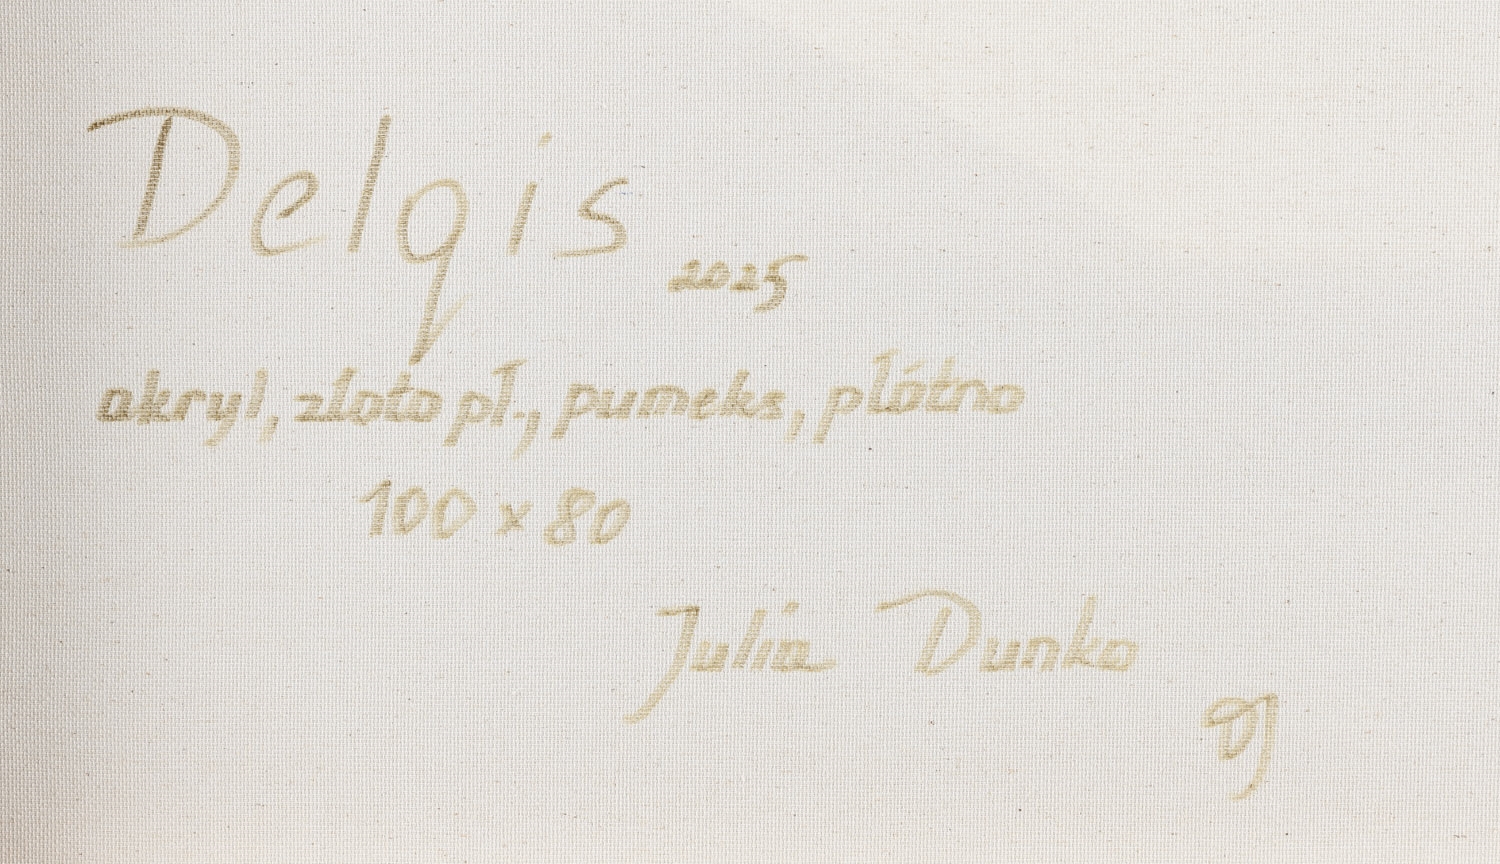 Delqis 2025
akryl, złoto pł., pumeks, płótno
100 x 80
Julia Dunko